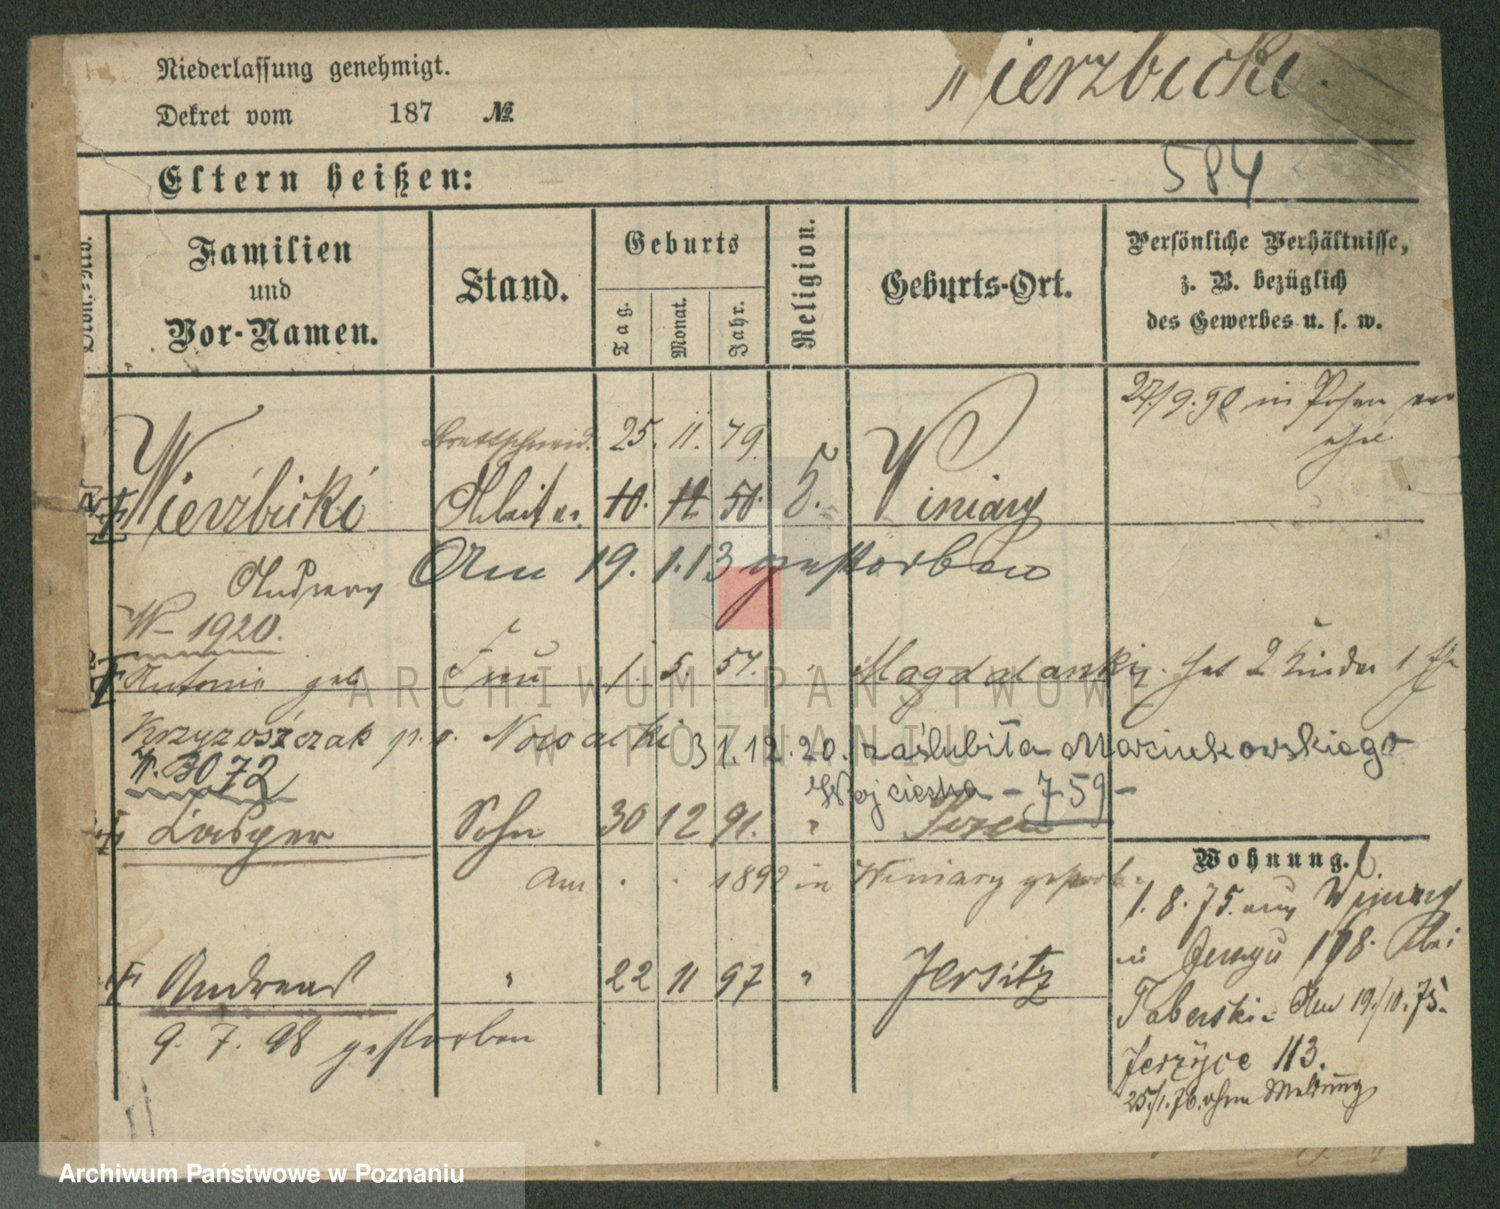 Niederlassung genehmigt.
Wierzbicki.
Dekret vom 187 №
584
Eltern heißen:
Familien
und
Vor-Namen.
Stand.
Geburts
Tag.
Monat.
Jahr.
Religion.
Geburts-Ort.
Persönliche Verhältnisse,
z. B. bezüglich
des Gewerbes u. s. w.
27/9.90 in Posen
25. 11. 79.
Wierzbicki Arbeiter 10. 11. 50. Winiary
Am 19. 1. 13 gestorben
W- 1920.
Antonie geb Frau 1. 5. 57. Magdalanki. hat 2 Kinder 1
Krzyzoszczak p. v. Nowacki 31. 12. 20. zaślubiła Marcinkowskiego
3072
Wojciecha - 759 -
Kasper Sohn 30 12 91. "
Am . . 1892 in Winiary
Andreas " 22 11 97 " Jersitz
9. 7. 98 gestorben
Wohnung.
1. 8. 75. aus Winiary
in 118. bei
Taberski. Am 19/10. 75.
Jerzyce 113.
25/1. 76. ohne Meldung
ARCHIWUM PAŃSTWOWE
W POZNANIU
Archiwum Państwowe w Poznaniu